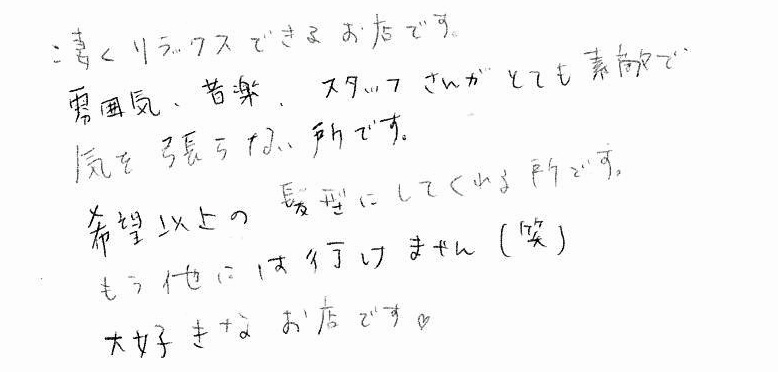 凄くリラックスできるお店です。
雰囲気、音楽、スタッフさんがとても素敵で
気を張らない所です。
希望以上の髪型にしてくれる所です。
もう他には行けません(笑)
大好きなお店です♡